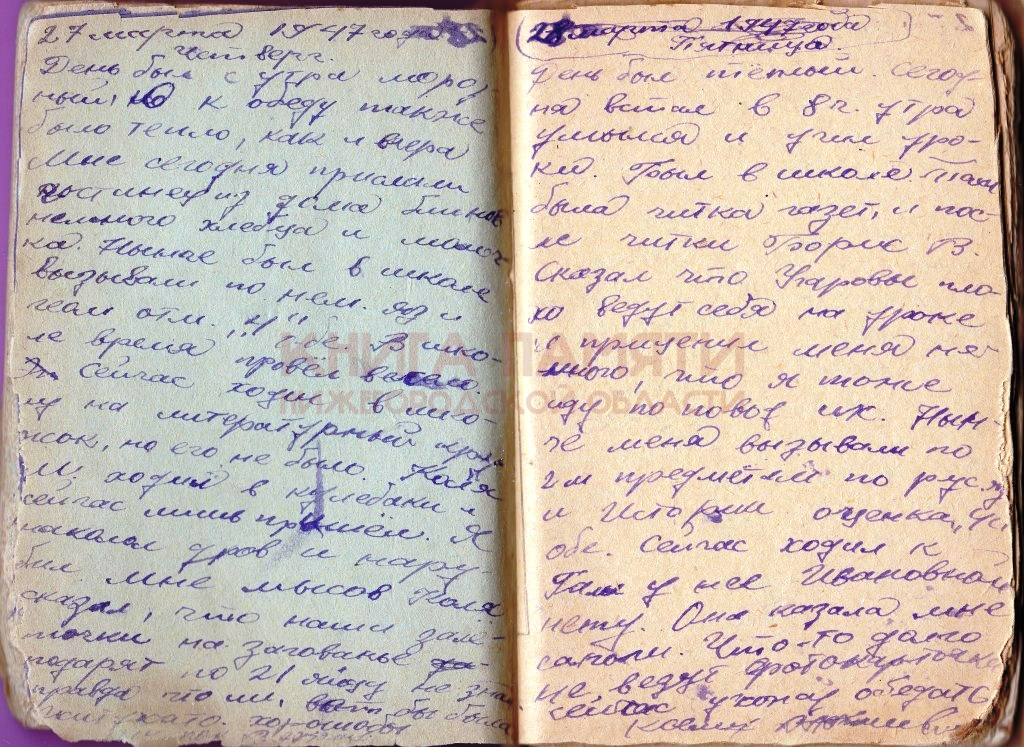 27 марта 1947 года
Четверг.
День был с утра мороз-
ный, но к обеду также
было тепло, как и вчера
Мне сегодня прислали
гостинец из дома блинов
немного хлебца и молоч
ка. Нынче был в школе
вызывали по нем. яз и
геом отм. "4"
ле время провёл весело.
сейчас ходил в шко-
лу на литературный кру-
жок, но его не было. Коля
М. ходил в кулебаки и
сейчас лишь пришёл. Я
наколол дров и нару-
бил. Мне мысов Коля
сказал, что наши
точки на
подарят по 21 не знаю
правда что ли, бы было
хорошо бы
28 марта 1947 года
Пятница.
День был тёплый. Сегод
ня встал в 8 ч. утра
умылся и учил уро-
ки. Был в школе. Там
была читка газет, и пос-
ле читки Борис В.
сказал что Уваровы пло-
хо ведут себя на уроке
и прицепил меня не-
много, что я тоже
иду по повод их. Нын-
че меня вызывали по
2 м предметам по рус. яз
и Истории оценка
обе. Сейчас ходил к
Гале у нее Ивановной
нету. Она казала мне
сапоги. Что-то долго
не ведут фотокарточки
сейчас ухожу обедать
КНИГА ПАМЯТИ
НИЖЕГОРОДСКОЙ ОБЛАСТИ